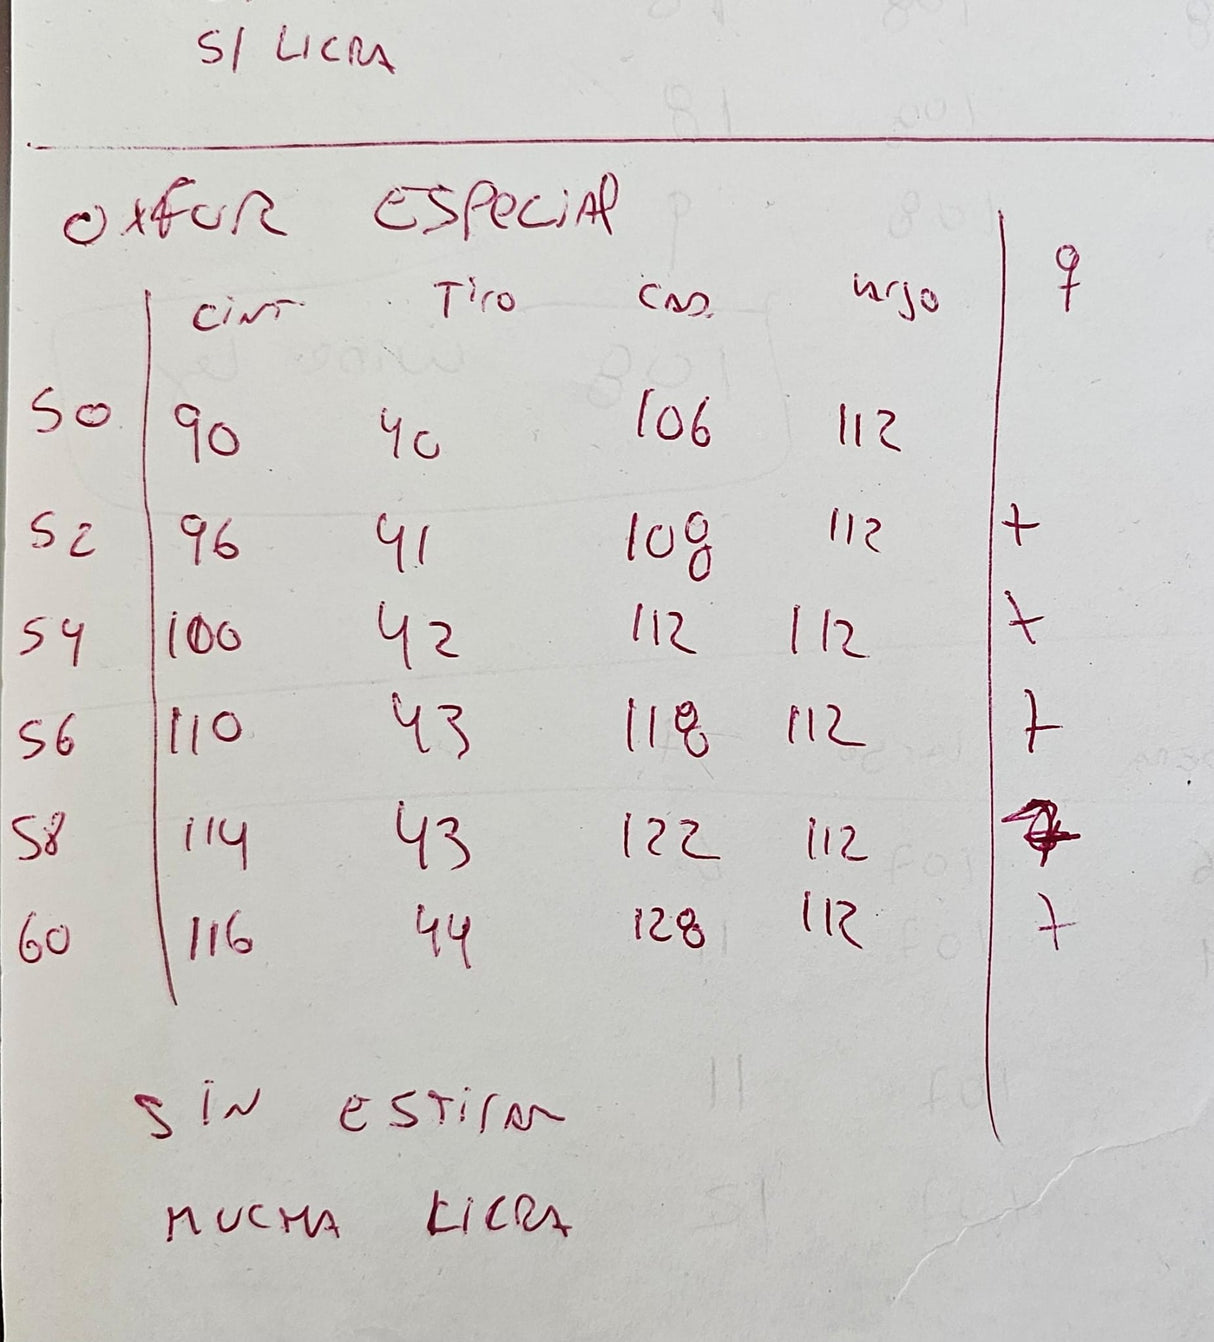 S/ LICRA
OXFUR ESPECIAL
CINT Tiro CAD. largo
50 90 40 106 112
52 96 41 108 112 +
54 100 42 112 112 +
56 110 43 118 112 +
58 114 43 122 112
60 116 44 128 112 +
SIN ESTIRAR
MUCHA LICRA